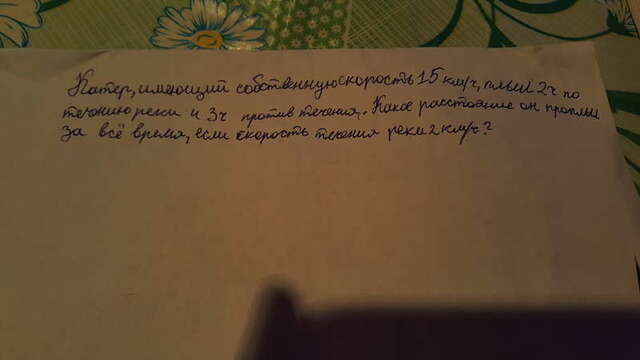 Катер, имеющий собственную скорость 15 км/ч, плыл 2ч по
течению реки и 3ч против течения. Какое расстояние он проплыл
за всё время, если скорость течения реки 2 км/ч?